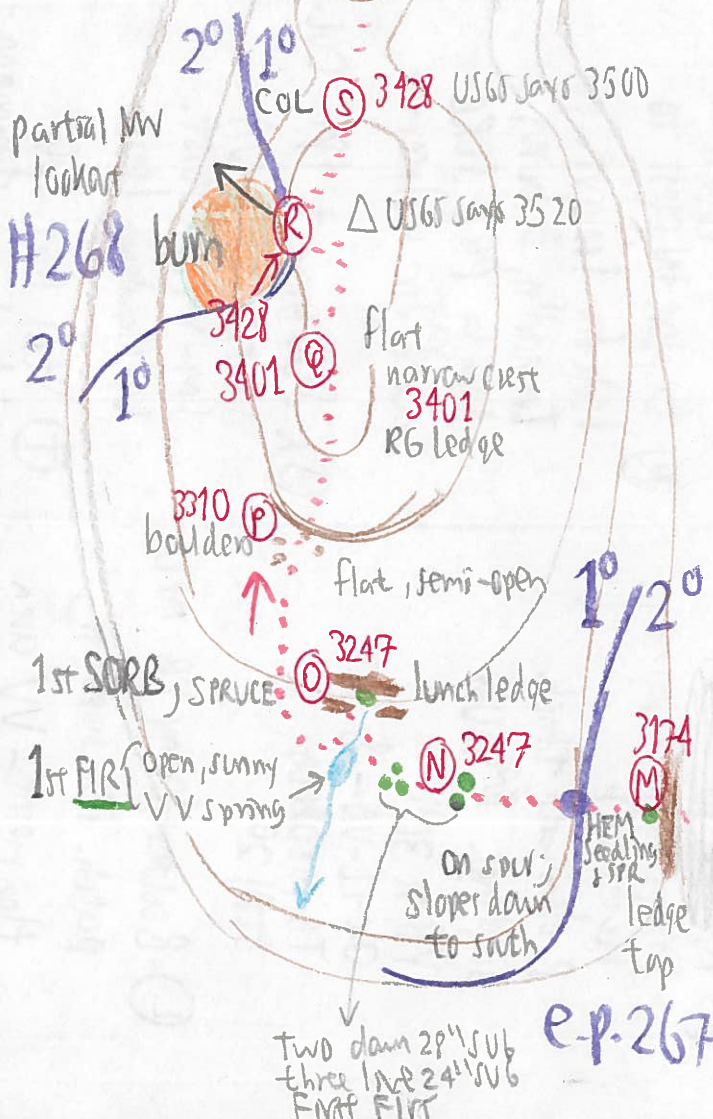 2° 1°
COL S 3428 USGS says 3500
partial NW
lookout
R △ USGS says 3520
#268 burn
3428
2° 1°
3401 Q flat
narrow crest
3401
RG ledge
3310 P
boulders
flat, semi-open
1° 2°
3247
1st SORB, SPRUCE O lunch ledge
1st FIR { open, sunny
VV spring
N 3247
3174
M
HEM
Seedling
& SPR
On spur;
slopes down
to south
ledge
top
e.p. 267
two down 28" SUB
three live 24" SUB